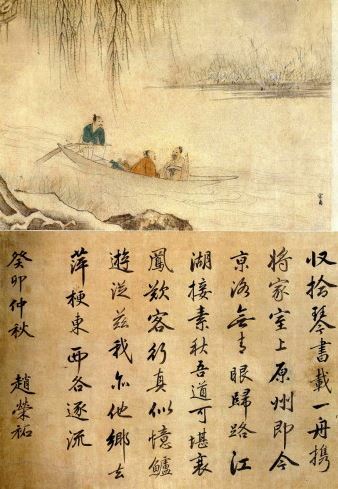 収拾琴書載一舟携
將家室上原州即今
京洛無青眼歸路江
湖接素秋吾道可堪衰
鳳歎客行真似憶鱸
遊從茲我亦他鄉去
萍梗東西各逐流
癸卯仲秋 趙榮祏